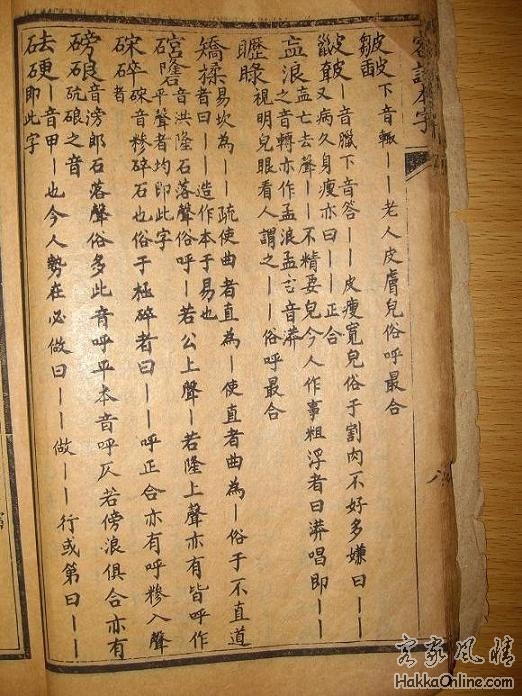 客話本字
八
皺 下音輙｜｜老人皮膚兒俗呼最合
｜音臘下音答｜｜皮瘦寬兒俗于割肉不好多嫌曰｜｜
又病久身瘦亦曰｜｜正合
孟浪 孟亡去聲｜｜不精要兒今人作事粗浮者曰漭唱即｜｜
之音轉亦作孟浪孟音漭
睩 視明兒眼看人謂之｜｜俗呼最合
矯揉 易坎為｜｜疏使曲者直為｜使直者曲為｜俗于不直道
者曰｜｜造作本于易也
音洪隆石落聲俗呼｜若公上聲｜若隆上聲亦有皆呼作
平聲者均即此字
碎 音糝碎石也俗于極碎者曰｜｜呼正合亦有呼糝入聲
者
磅硠 音滂郎石落聲俗多此音呼平本音呼仄若傍浪俱合亦有
硫硠之音
砝硬 ｜音甲｜也今人勢在必做曰｜｜做｜｜行或第曰｜｜
砝硬即此字
客家風情
HakkaOnline.com